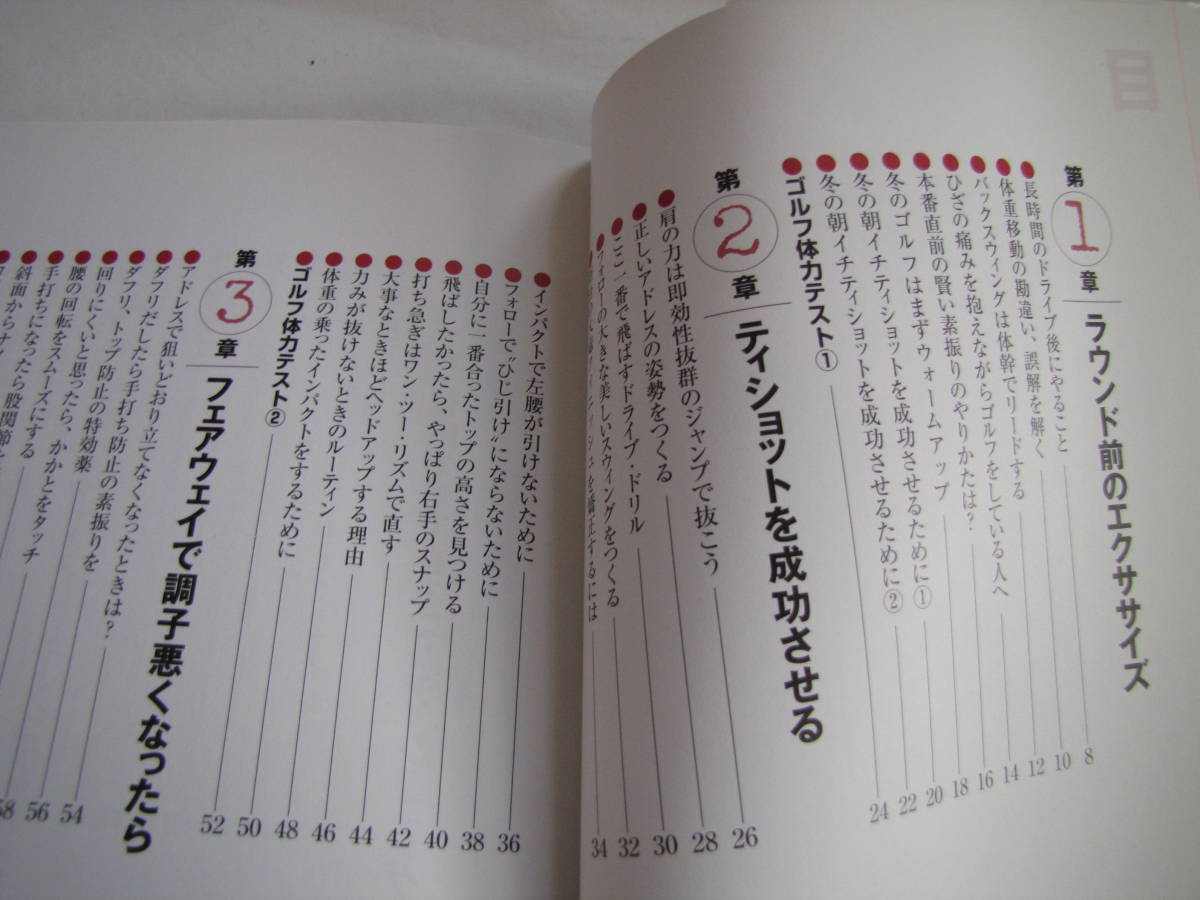 目
第1章 ラウンド前のエクササイズ
●長時間のドライブ後にやること 8
●体重移動の勘違い、誤解を解く 10
●バックスウィングは体幹でリードする 12
●ひざの痛みを抱えながらゴルフをしている人へ 14
●本番直前の賢い素振りのやりかたは? 16
●冬のゴルフはまずウォームアップ 18
●冬の朝イチティショットを成功させるために① 20
●冬の朝イチティショットを成功させるために② 22
●ゴルフ体力テスト① 24
第2章 ティショットを成功させる
●肩の力は即効性抜群のジャンプで抜こう 26
●正しいアドレスの姿勢をつくる 28
●ここ一番で飛ばすドライブ・ドリル 30
●フォローの大きな美しいスウィングをつくる 32
フィニッシュを矯正するには 34
●インパクトで左腰が引けないために 36
●フォローで“ひじ引け”にならないために 38
●自分に一番合ったトップの高さを見つける 40
●飛ばしたかったら、やっぱり右手のスナップ 42
●打ち急ぎはワン・ツー・リズムで直す 44
●大事なときほどヘッドアップする理由 46
●力みが抜けないときのルーティン 48
●体重の乗ったインパクトをするために 50
●ゴルフ体力テスト② 52
第3章 フェアウェイで調子悪くなったら
●アドレスで狙いどおり立てなくなったときは? 54
●ダフリだしたら手打ち防止の素振りを 56
●ダフリ、トップ防止の特効薬 58
●回りにくいと思ったら、かかとをタッチ
●腰の回転をスムーズにする
●手打ちになったら股関節を
●斜面からナイ